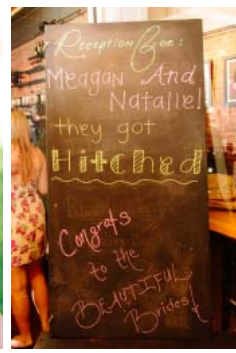 Reception for:
Meagan And
Natalie!
they got
Hitched
Congrats
to the
BEAUTIFUL
Brides!